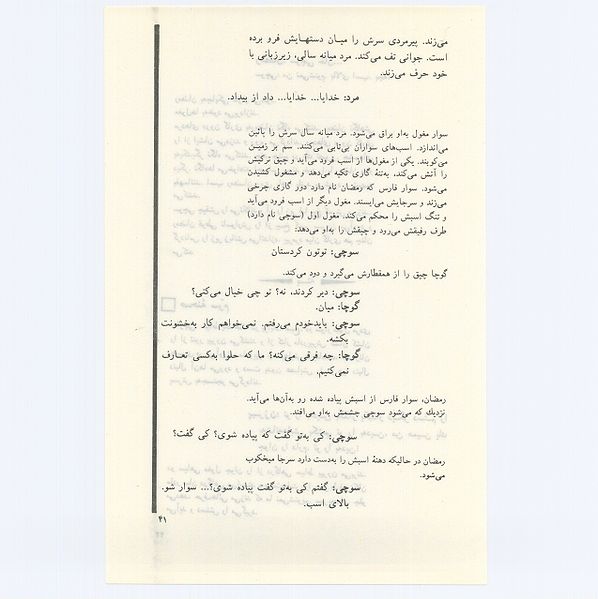 می‌زند. پیرمردی سرش را میـان دستهـایش فرو برده
است. جوانی تف می‌کند. مرد میانه سالی، زیرزبانی با
خود حرف می‌زند.
مرد: خدایا... خدایا... داد از بیداد.
سوار مغول به‌او براق می‌شود. مرد میانه سال سرش را پائین
می‌اندازد. اسب‌های سواران بی‌تابی می‌کنند. سم بر زمیـن
می‌کوبند. یکی از مغول‌ها از اسب فرود می‌آید و چپق ترکیش
را آتش می‌کند، به‌تنهٔ گاری تکیه می‌دهد و مشغول کشیدن
می‌شود. سوار فارس که رمضان نام دارد دور گاری چرخی
می‌زند و سرجایش می‌ایستد. مغول دیگر از اسب فرود می‌آید
و تنگ اسبش را محکم می‌کند. مغول اول (سوچی نام دارد)
طرف رفیقش می‌رود و چپقش را به‌او می‌دهد:
سوچی: توتون کردستان
گوچا چپق را از همقطارش می‌گیرد و دود می‌کند.
سوچی: دیر کردند، نه؟ تو چی خیال می‌کنی؟
گوچا: میان.
سوچی: بایدخودم می‌رفتم. نمی‌خواهم کار به‌خشونت
بکشه.
گوچا: چه فرقی می‌کنه؟ ما که حلوا به‌کسی تعارف
نمی‌کنیم.
رمضان، سوار فارس از اسبش پیاده شده رو به‌آن‌ها می‌آید.
نزدیك که می‌شود سوچی چشمش به‌او می‌افتد.
سوچی: کی به‌تو گفت که پیاده شوی؟ کی گفت؟
رمضان در حالیکه دهنهٔ اسبش را به‌دست دارد سرجا میخکوب
می‌شود.
سوچی: گفتم کی به‌تو گفت پیاده شوی؟... سوار شو.
بالای اسب.
۴۱